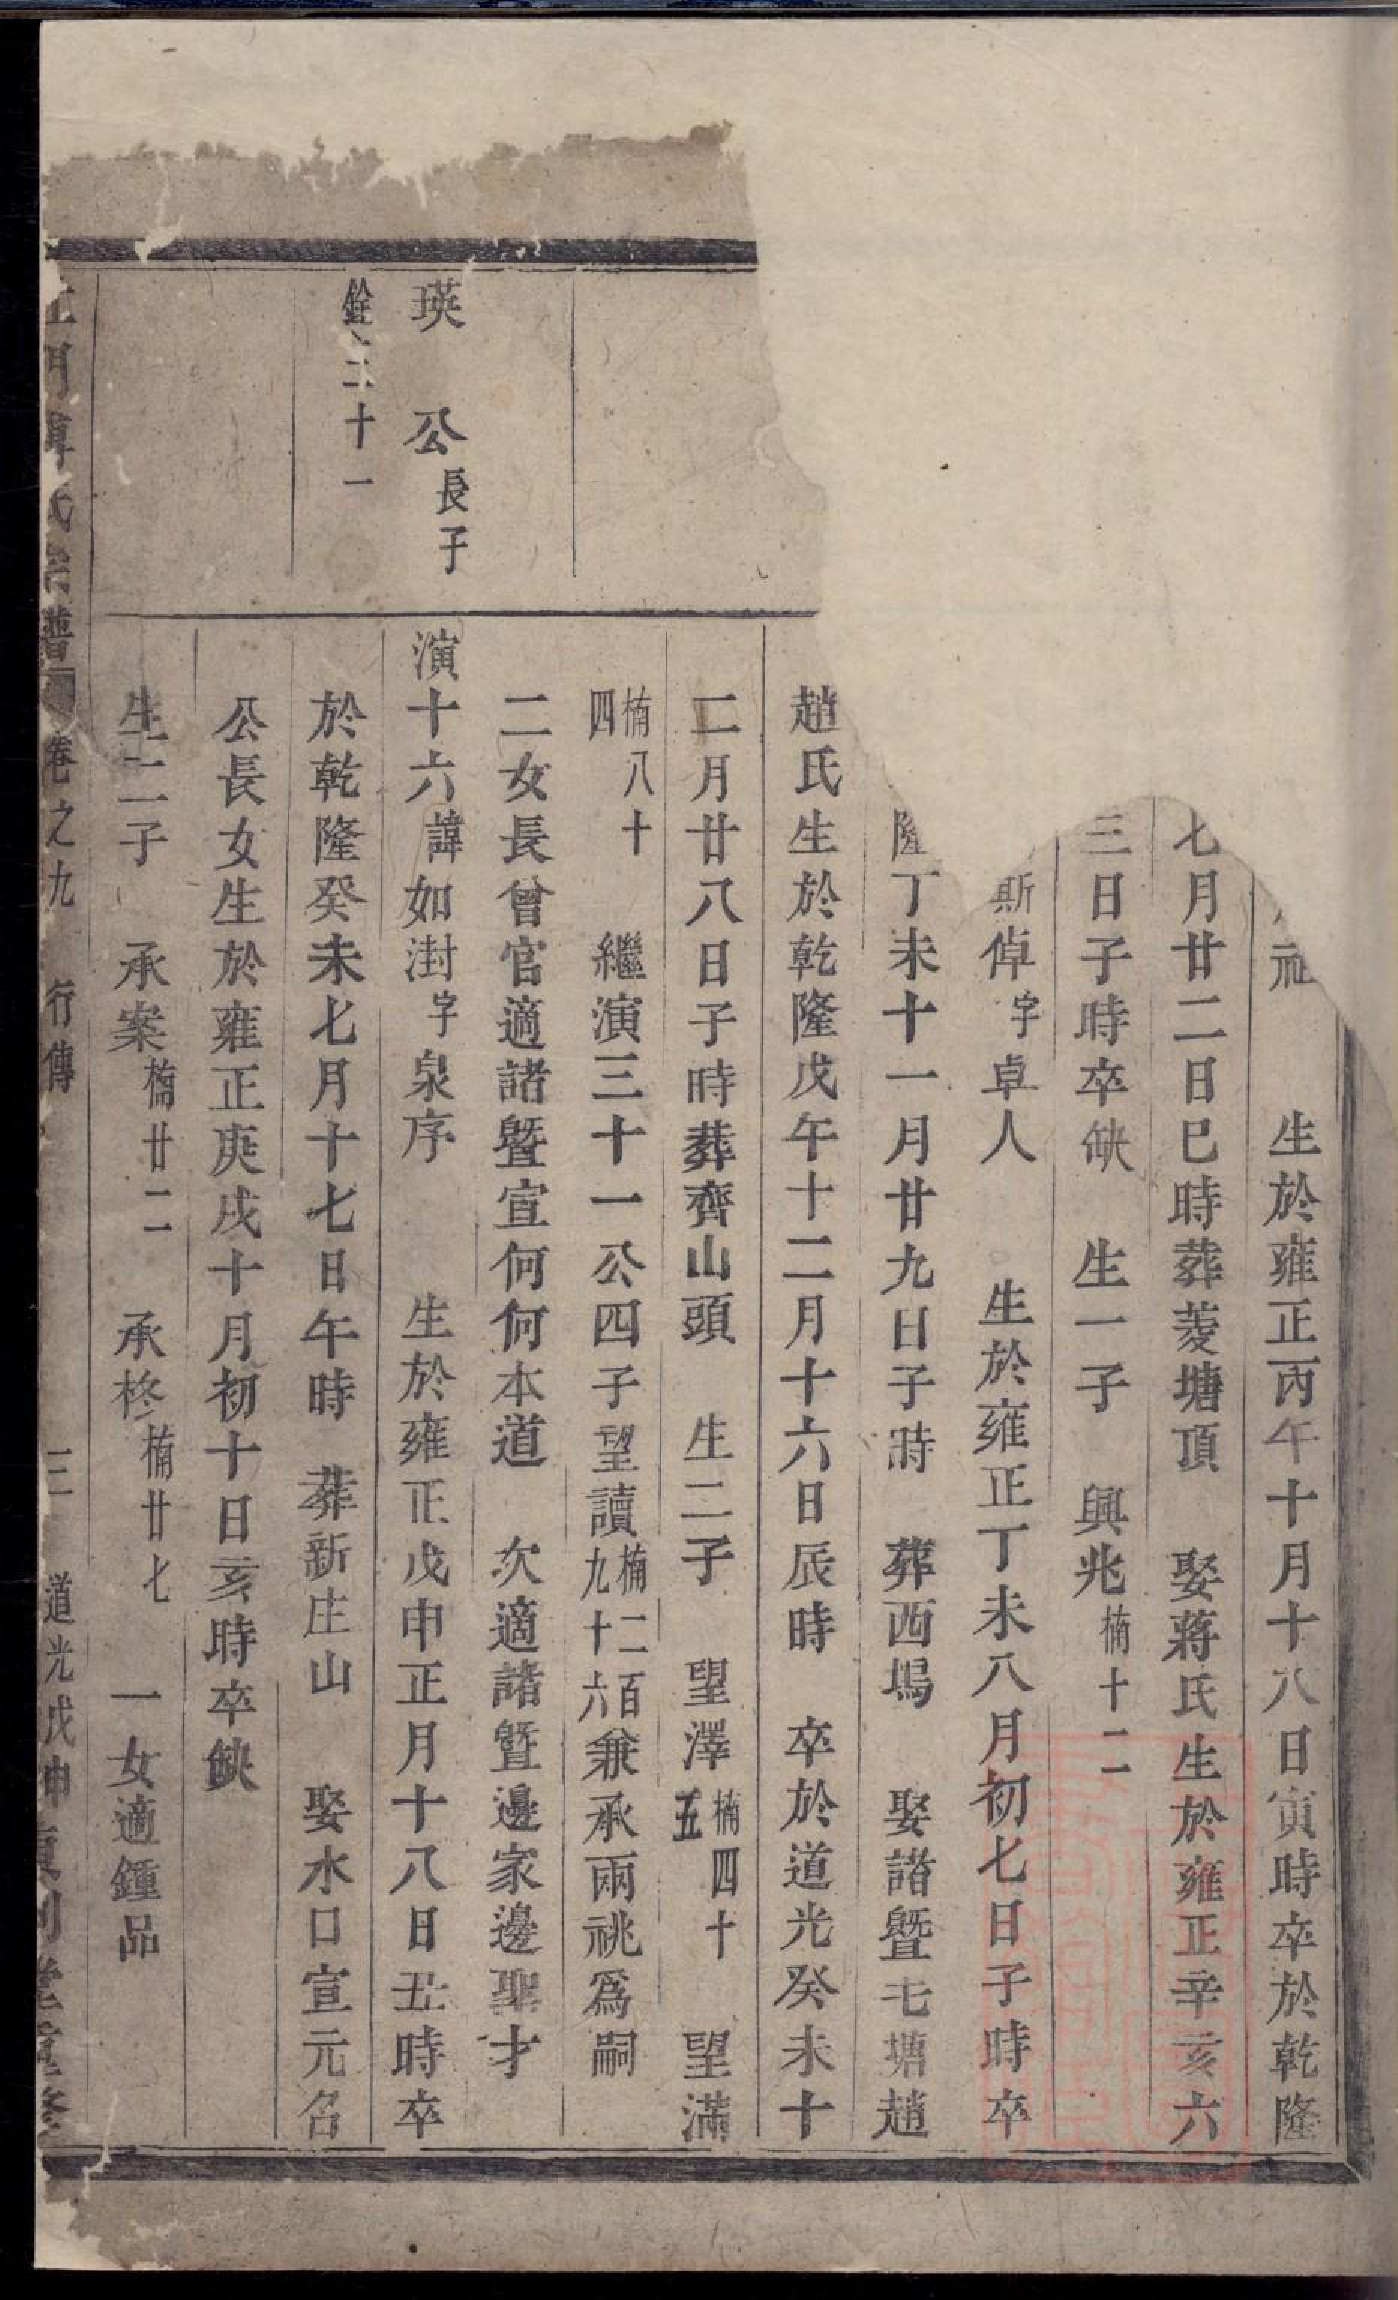 祉 生於雍正丙午十月十八日寅時卒於乾隆
七月廿二日巳時葬菱塘頂 娶蔣氏生於雍正辛亥六
三日子時卒缺 生一子 興兆楠十二
斯倬字卓人 生於雍正丁未八月初七日子時卒
隆丁未十一月廿九日子時 葬西塢 娶諸暨七塘趙
趙氏生於乾隆戊午十二月十六日辰時 卒於道光癸未十
二月廿八日子時葬齊山頭 生二子 望澤楠四十五 望滿
楠八十四 繼演三十一公四子望讀楠二百九十六兼承兩祧爲嗣
二女長曾官適諸暨宣何何本道 次適諸暨邊家邊聖才
瑛 公長子
演十六諱如澍字泉序 生於雍正戊申正月十八日丑時卒
銓 三十一
於乾隆癸未七月十七日午時 葬新庄山 娶水口宣元名
公長女生於雍正庚戌十月初十日亥時卒缺
生二子 承案楠廿二 承柊楠廿七 一女適鍾品
氏宗譜 卷之九 行傳 三 道光戊申 重修